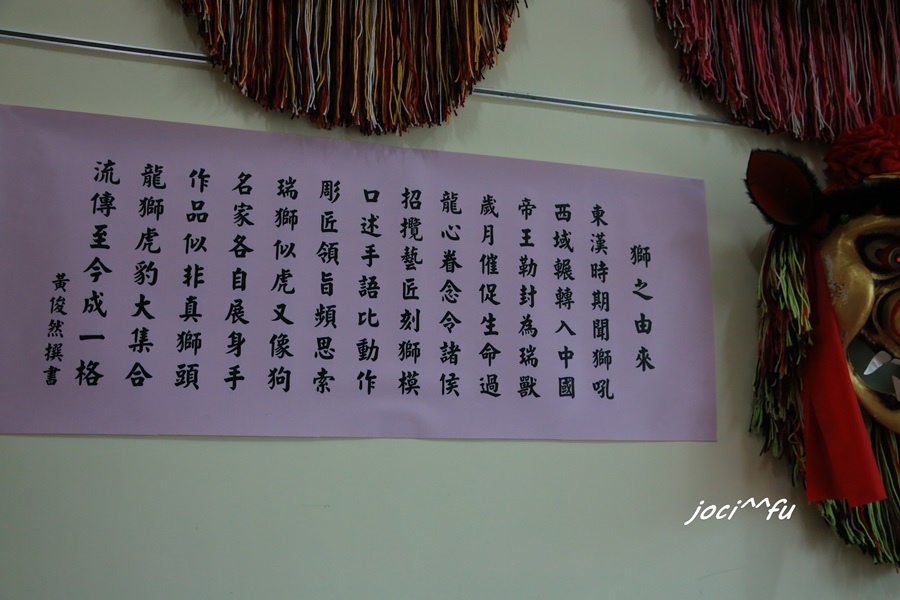 獅之由來
東漢時期聞獅吼
西域輾轉入中國
帝王勒封為瑞獸
歲月催促生命過
龍心眷念令諸侯
招攬藝匠刻獅模
口述手語比動作
彫匠領旨頻思索
瑞獅似虎又像狗
名家各自展身手
作品似非真獅頭
龍獅虎豹大集合
流傳至今成一格
黃俊然撰書
joci^^fu